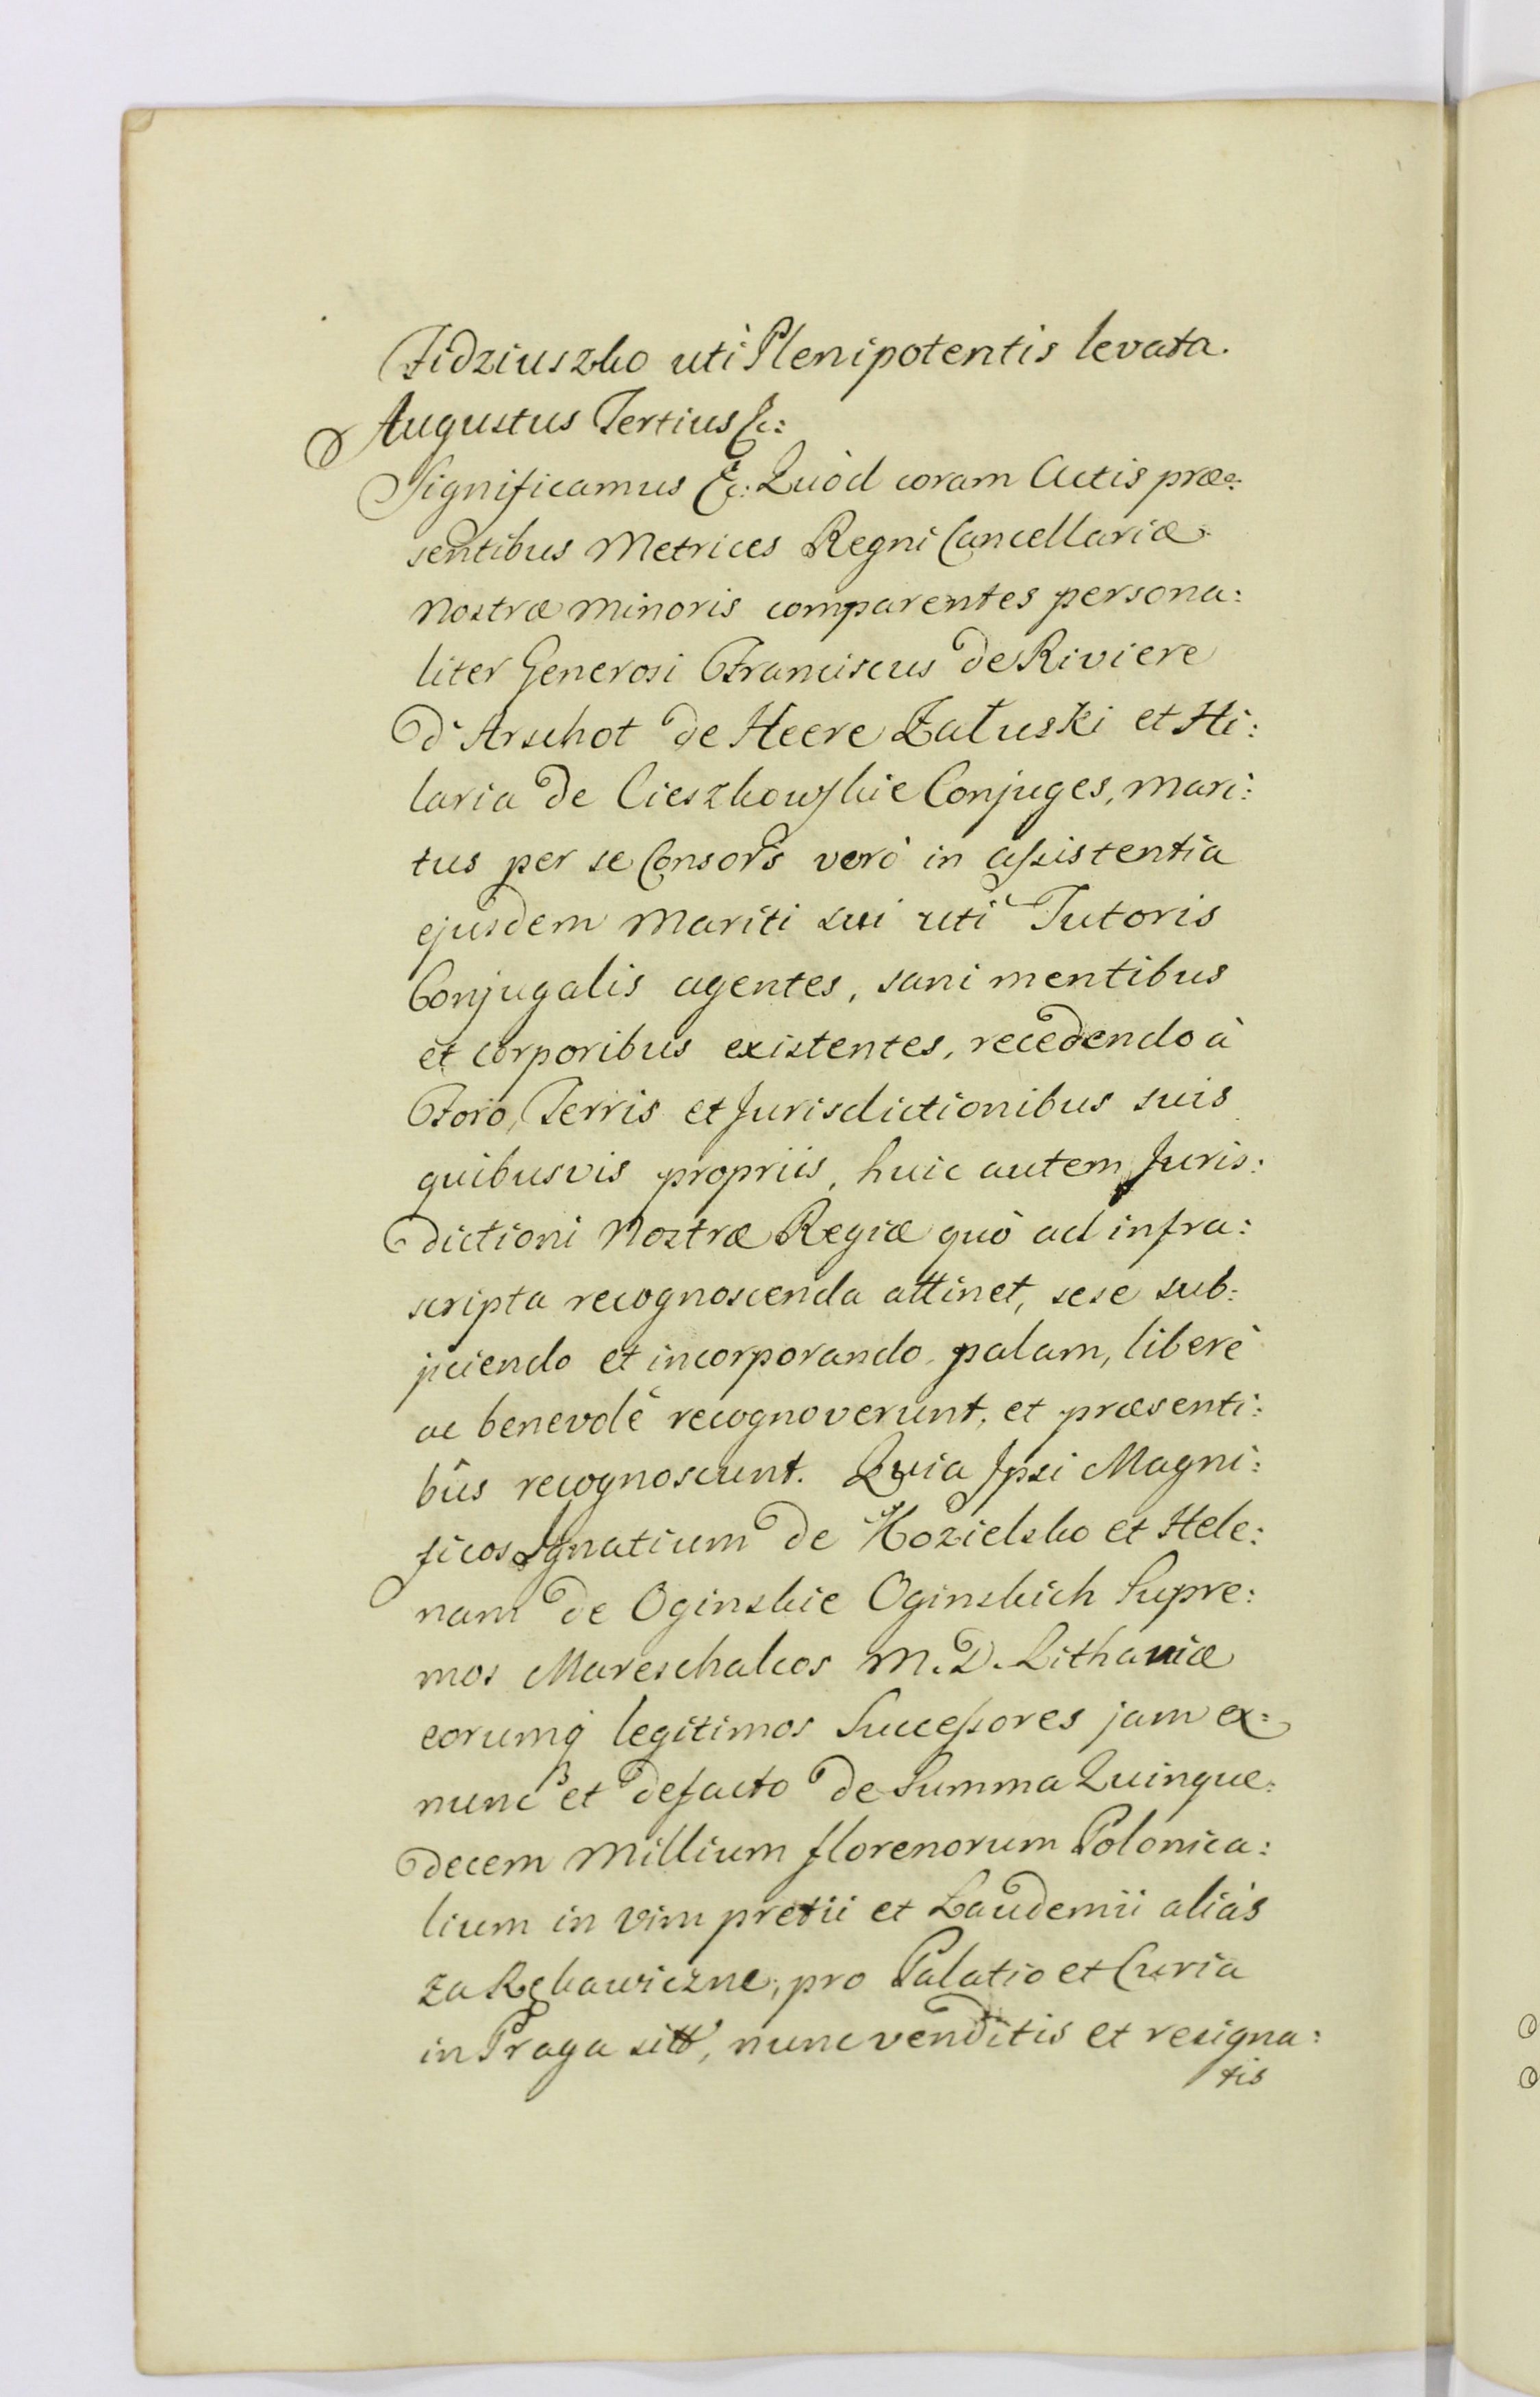 Fidziuszko uti Plenipotentis levata.
Augustus Tertius &c:
Significamus &c: Quòd coram Actis præ:
sentibus Metrices Regni Cancellariæ
Nostræ Minoris comparentes persona:
liter Generosi Franciscus de Riviere
d'Arschot de Heere Załuski et Hi:
laria de Cieszkowskie Conjuges, Mari:
tus per se Consors verò in assistentia
ejusdem Mariti sui uti Tutoris
Conjugalis agentes, sani mentibus
et corporibus existentes, recedendo à
Foro, Terris et Jurisdictionibus suis
quibusvis propriis, huic autem Juris:
dictioni Nostræ Regiæ quò ad infra:
scripta recognoscenda attinet, sese sub:
jiciendo et incorporando palam, liberè
ac benevolè recognoverunt, et præsenti:
bûs recognoscunt. Quia Ipsi Magni:
ficos Ignatium de Kozielsko et Hele:
nam de Oginskie Oginskich Supre:
mos Mareschalcos M. D. Lithaniæ
eorumq́ legitimos Successores jam ex:
nunc et defacto de Summa Quinque:
decem Millium florenorum Polonica:
lium in vim pretii et Laudemii aliàs
za Rękawiczne, pro Palatio et Curia
in Praga sitt, nunc venditis et resigna:
tis